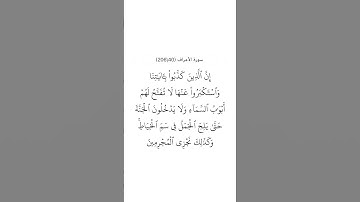 سورة الأعراف (206:40)
إِنَّ ٱلَّذِينَ كَذَّبُوا۟ بِـَٔايَـٰتِنَا
وَٱسْتَكْبَرُوا۟ عَنْهَا لَا تُفَتَّحُ لَهُمْ
أَبْوَٰبُ ٱلسَّمَآءِ وَلَا يَدْخُلُونَ ٱلْجَنَّةَ
حَتَّىٰ يَلِجَ ٱلْجَمَلُ فِى سَمِّ ٱلْخِيَاطِ ۚ
وَكَذَٰلِكَ نَجْزِى ٱلْمُجْرِمِينَ